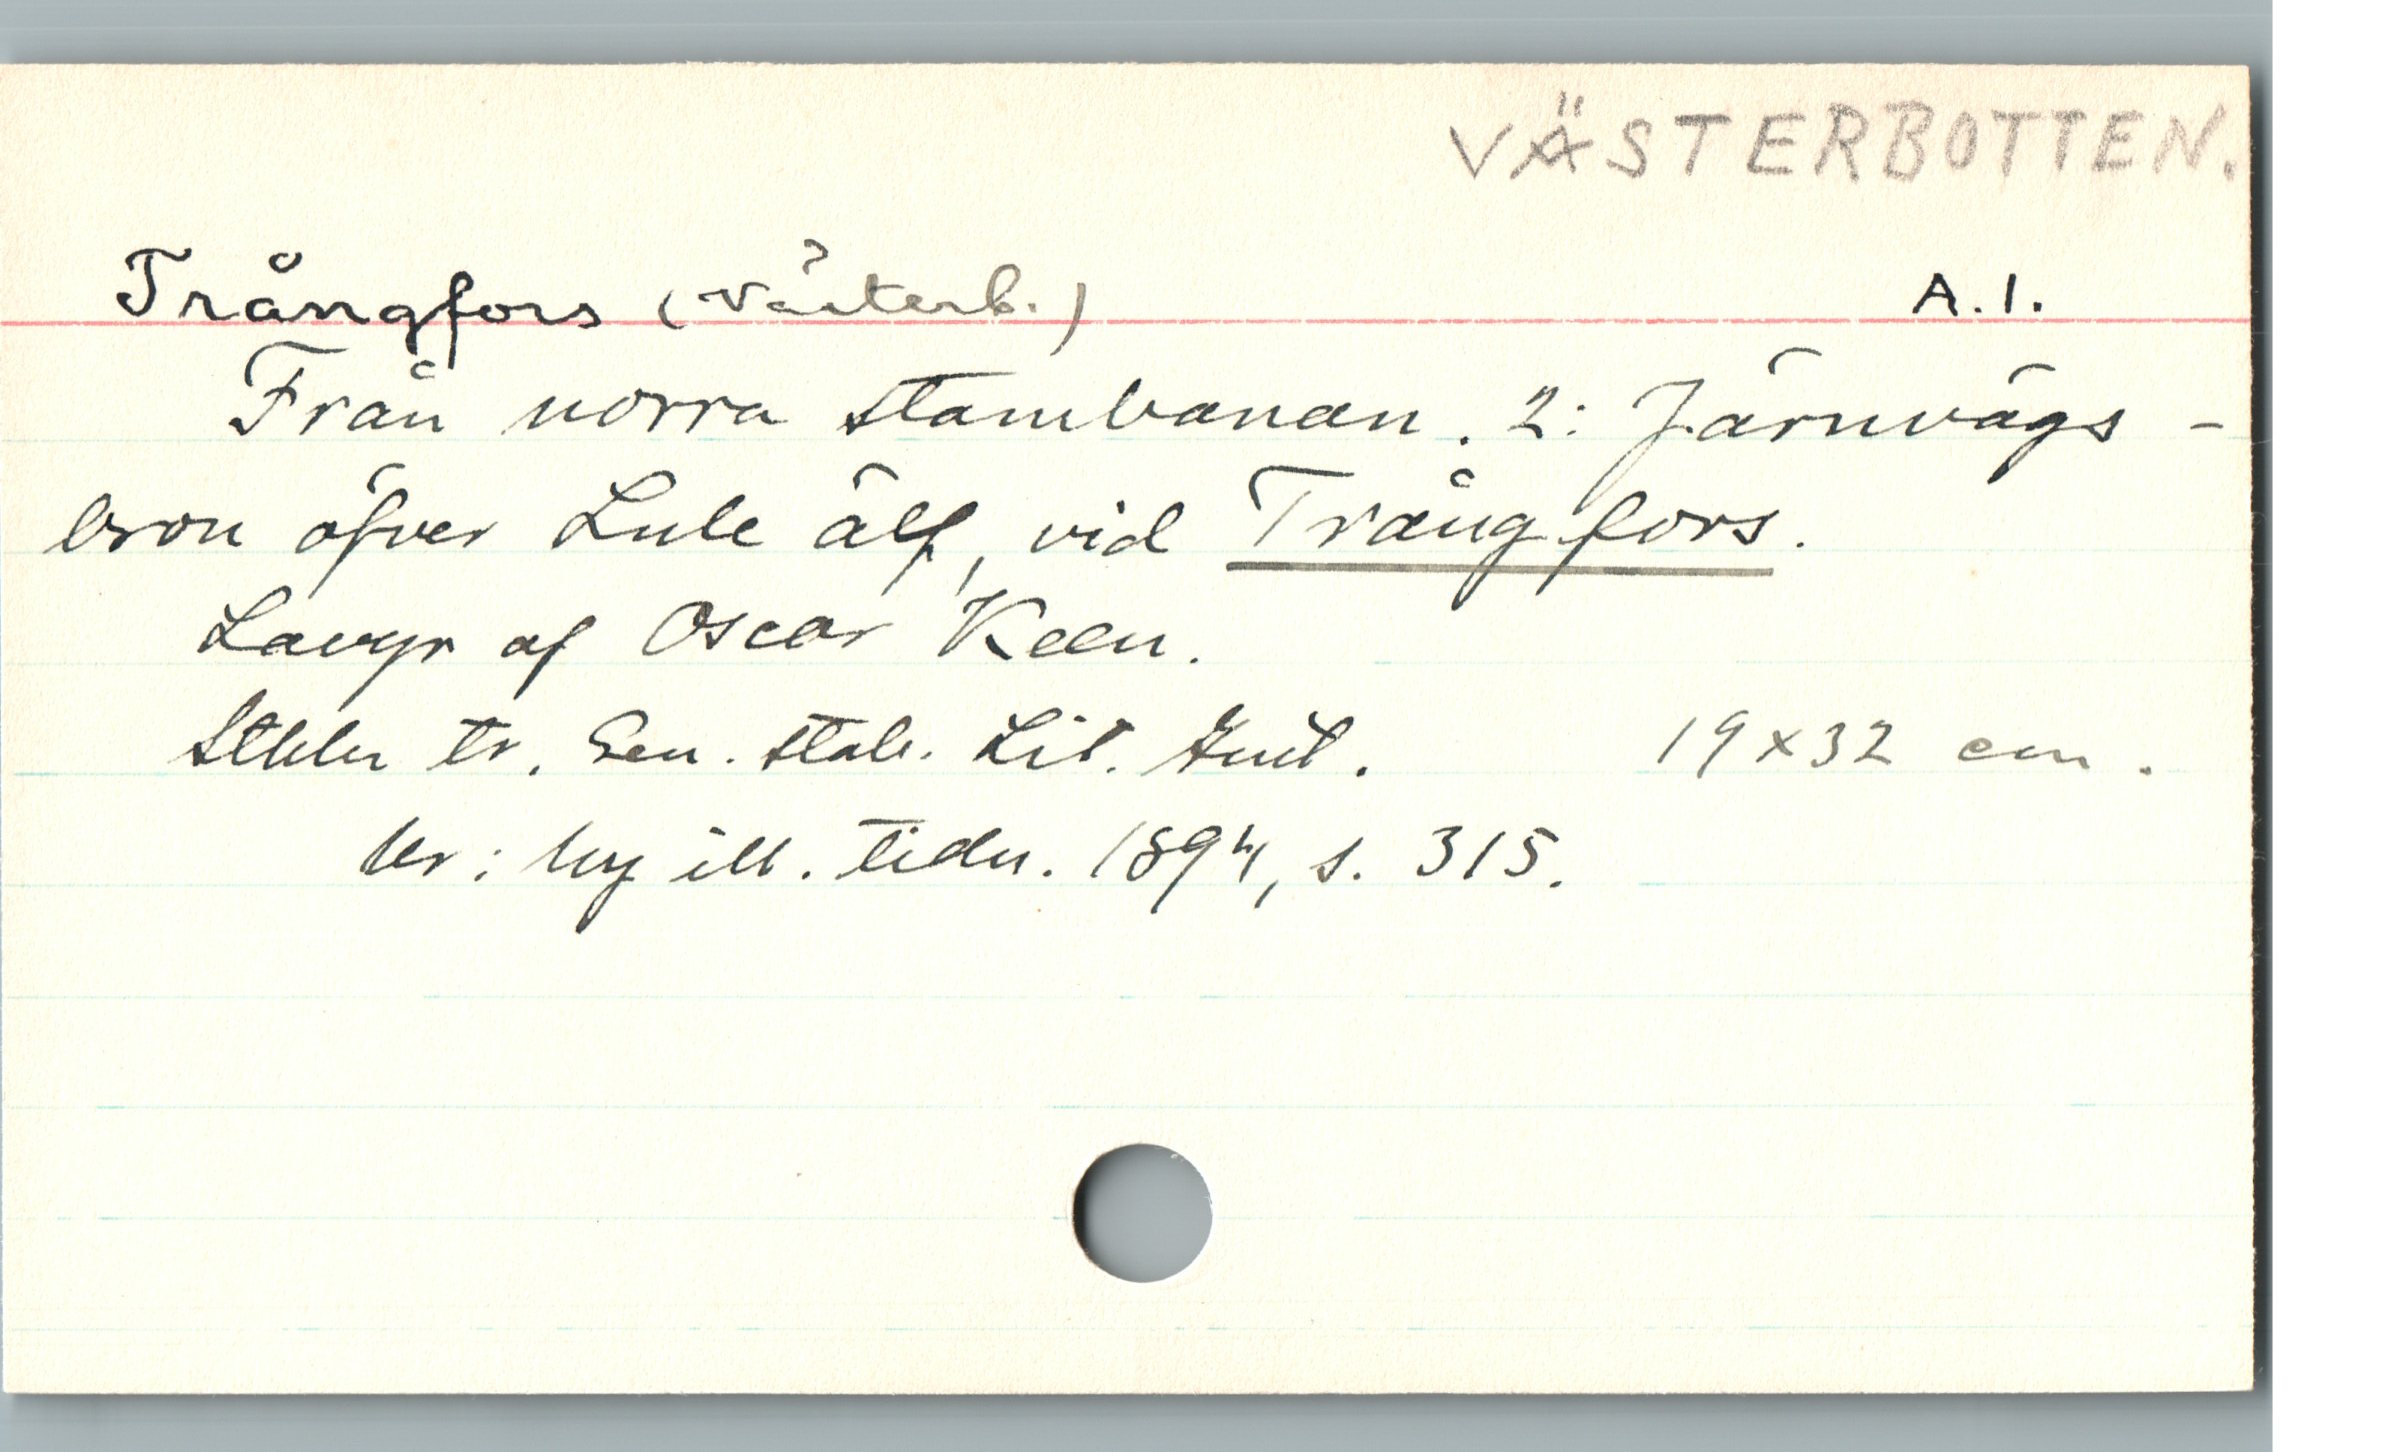 VÄSTERBOTTEN.
Trångfors (Västerb.) A.1.
Från norra stambanan. 2: Järnvägs-
bron öfver Lule älf, vid Trångfors.
Lavyr af Oscar Keen.
Sthlm tr. Gen. stab. Lit. Inst. 19x32 cm.
Ur: Ny ill. tidn. 1894, s. 315.